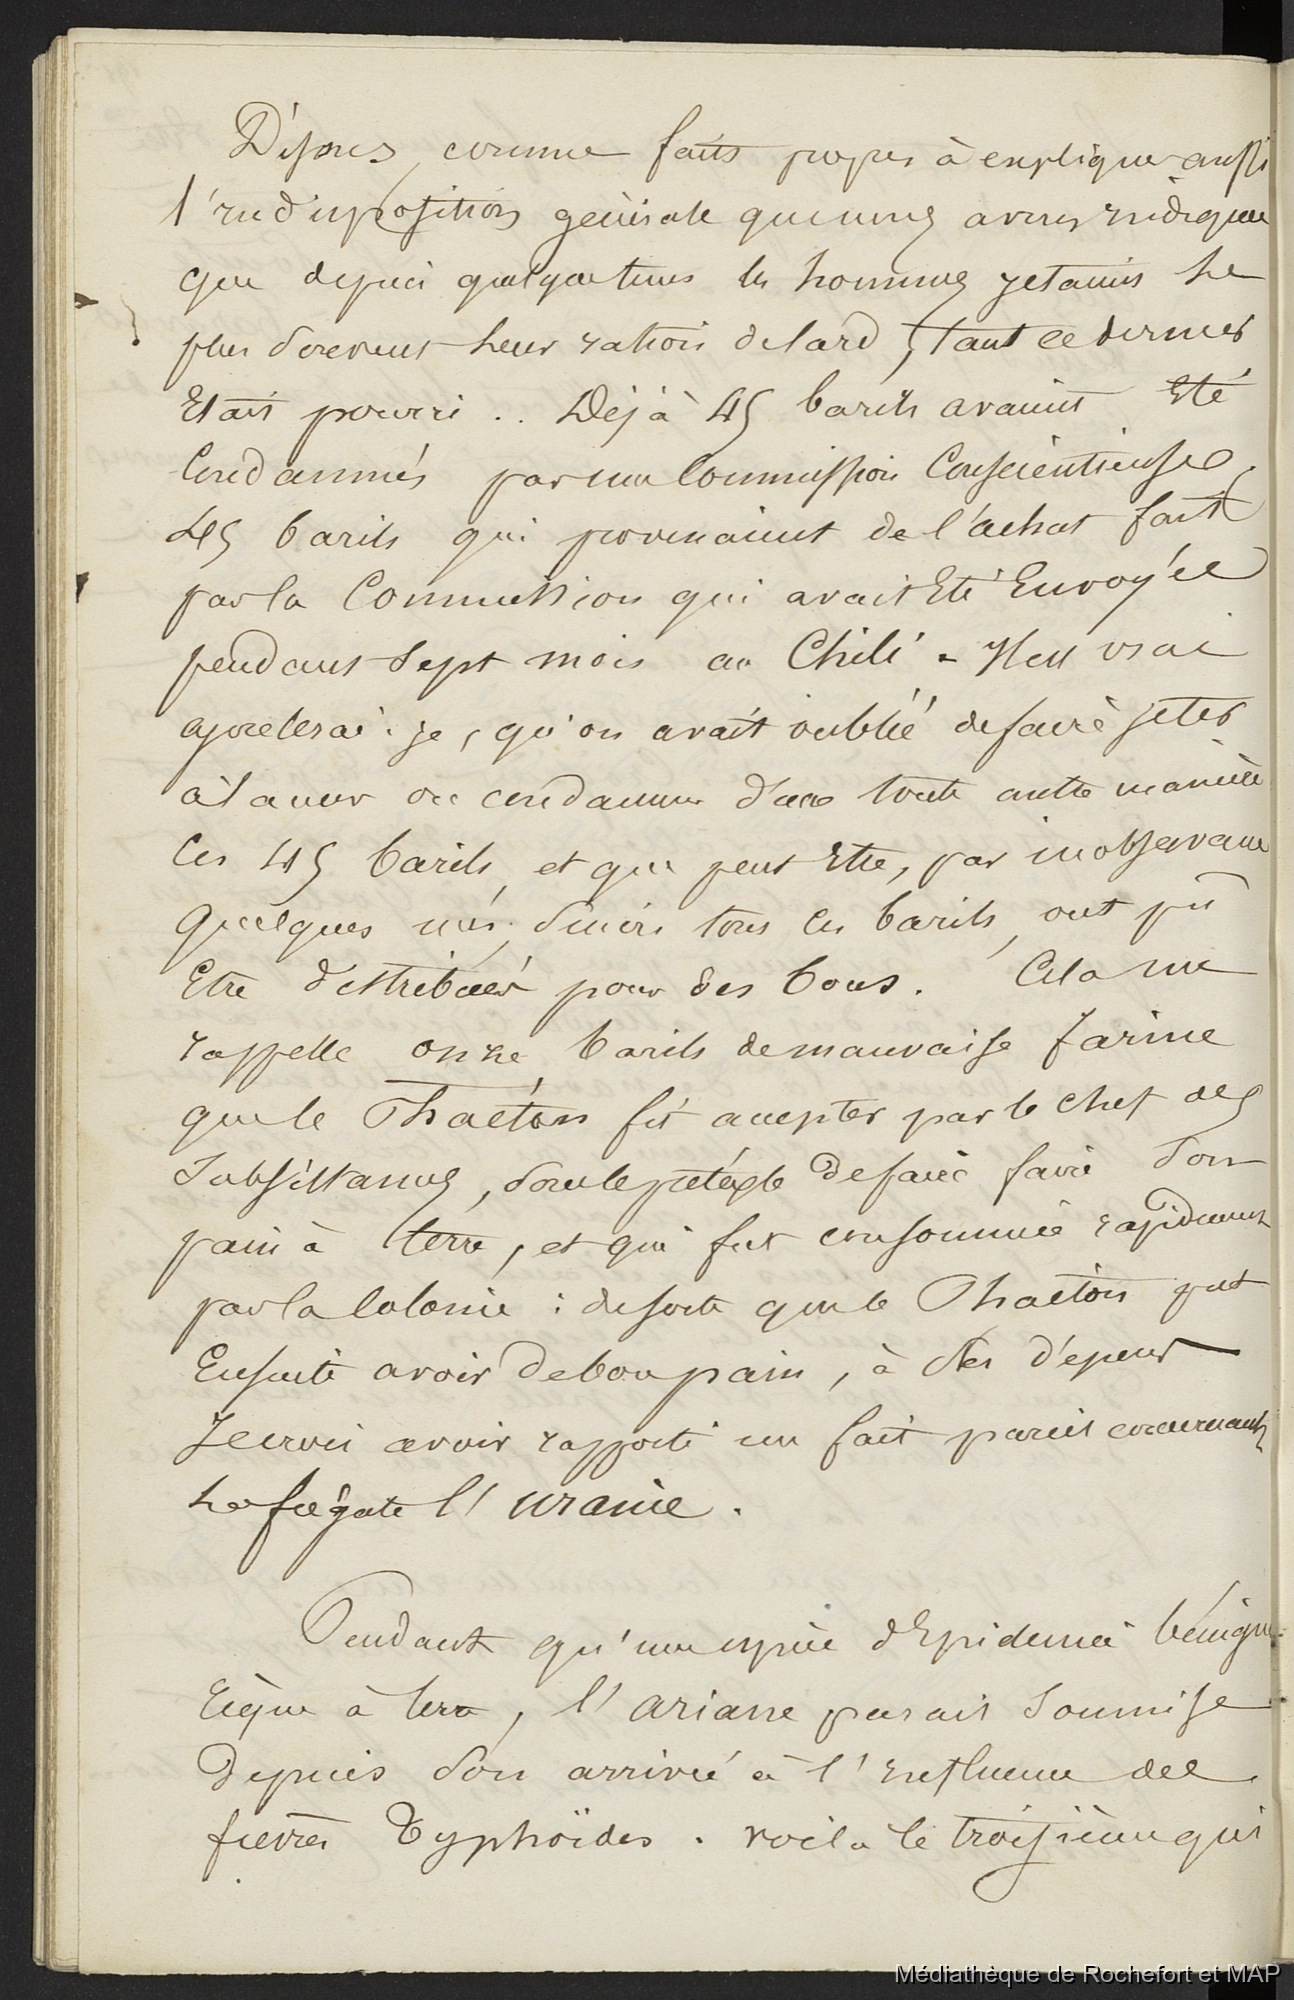 Disons, comme faits propres à expliquer aussi
l'indisposition générale que nous avons indiquée
que depuis quelque tems les hommes jetaient le
plus souvent leur ration de lard, tant ce dernier
Etait pourri .. Déjà 45 barils avaient Eté
Condamnés par une Commission Consciencieuse,
45 barils qui provenaient de l'achat fait
par la Commission qui avait Eté Envoyée
pendant Sept mois au Chili - Il est vrai
ajouterai-je, qu'on avait oublié de faire jeter
à la mer ou condamner d'une toute autre manière
Ces 45 barils, et que peut Etre, par inobservance
Quelques uns, sinon tous ces barils, ont pû
Etre distribués pour des bons. Cela me
rappelle onze barils de mauvaise farine
que le Phaéton fit accepter par le chef des
Subsistances, sous le prétexte de faire faire son
pain à terre, et qui fut consommée rapidement
par la Colonie : de sorte que le Phaéton put
Ensuite avoir de bon pain, à ses dépens
Je crois avoir rapporté un fait pareil concernant
La frégate l'Uranie.
Pendant qu'une espèce d'Epidemie bénigne
règne à terre, l'Ariane parait Soumise
Depuis son arrivée à l'Influence des
fièvres Typhoïdes. voila le troisième qui
Médiathèque de Rochefort et MAP